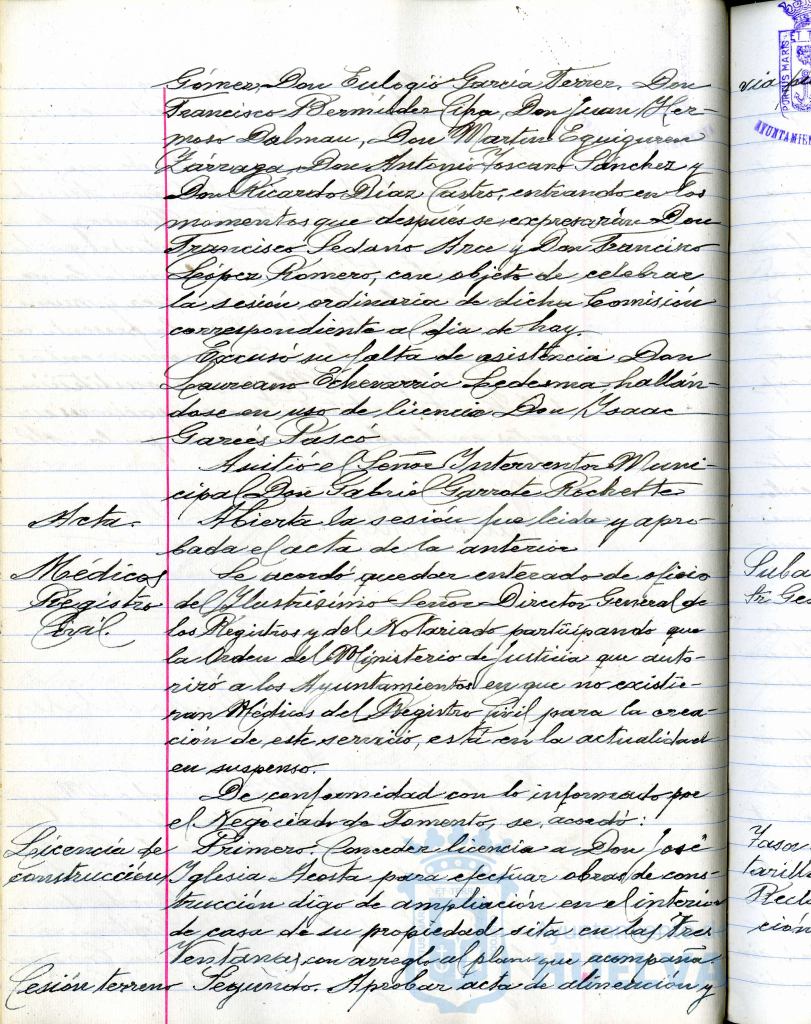 Gómez, Don Eulogio García Ferrer, Don
Francisco Bermúdez Cipa, Don Juan Her-
moso Dalmau, Don Martín Eguiguren
Zárraga, Don Antonio Toscano Sánchez y
Don Ricardo Díaz Castro, entrando en los
momentos que después se expresarán Don
Francisco Sedano Arce y Don Francisco
López Romero, con objeto de celebrar
la sesión ordinaria de dicha Comisión
correspondiente al día de hoy.
Excusó su falta de asistencia Don
Laureano Echevarria Ledesma, hallán-
dose en uso de licencia Don Isaac
Garcés Pascó
Asistió el Señor Interventor Muni-
cipal Don Gabriel Garrote Rochette
Acta.
Abierta la sesión fue leida y apro-
bada el acta de la anterior
Médicos
Registro
Civil.
Se acordó quedar enterado de oficio
del Ilustrísimo Señor Director General de
los Registros y del Notariado participando que
la Orden del Ministerio de Justicia que auto-
rizó a los Ayuntamientos en que no existie-
ran Médicos del Registro Civil para la crea-
ción de este servicio, está en la actualidad
en suspenso.
De conformidad con lo informado por
el Negociado de Fomento, se acordó:
Licencia de
construcción
Primero. Conceder licencia a Don José
Iglesia Acosta para efectuar obras de cons-
trucción digo de ampliación en el interior
de casa de su propiedad sita en las Tres
Ventanas, con arreglo al plano que acompaña.
Cesión terreno
Segundo. Aprobar acta de alineación y
Ayuntamiento
HUELVA
PORTUS MARIS ET T
AYUNTAMIEN
via
Suba